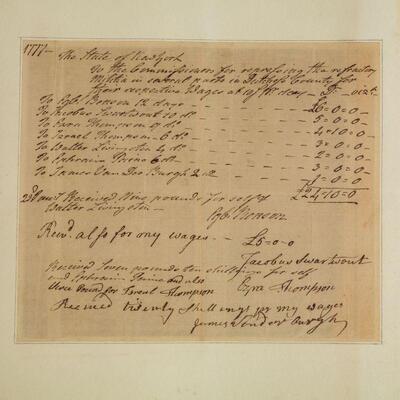 1777 —
The State of NewYork
To the Commissioners for repressing the refractory
Militia in several parts in Dutchess County for
their respective Wages at 10/ P. day — Dr.
To Egb. Benson 12 days — £6=0=0-
To Jacobus Swartwout 10 do. — 5=0=0-
To Ezra Thompson 9 do. — 4=10=0
To Israel Thompson 6 do. — 3=0=0-
To Walter Livingston 4 do. — 2=0=0-
To Ephraim Paine 6 do. — 3=0=0-
To James Van Der Burgh 2 do. — 1=0=0-
£24=10=0
23d Received Nine pounds for self &
Walter Livingston — Egb. Benson
Recd. also for my wages — £5=0-0
Jacobus Swartwout
Received Seven pounds ten shillings for self
and Ephraim Paine and also
three Pound for Israel Thompson Ezra Thompson
Received twenty shillings for my wages
James Vander burgh